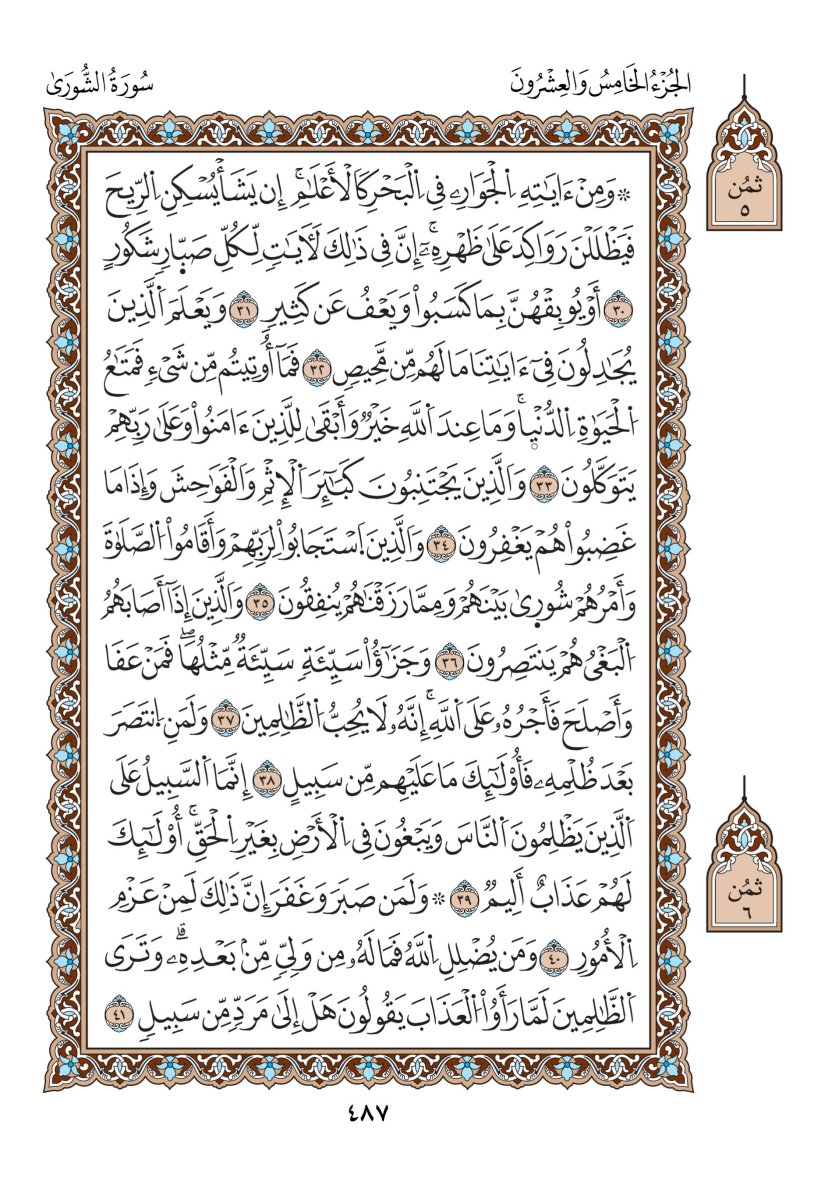 الجُزْءُ الخَامِسُ وَالعِشْرُونَ
سُورَةُ الشُّورَىٰ
ثُمُن
٥
۞ وَمِنْ ءَايَٰتِهِ اِ۬لْجَوَارِۦ فِي اِ۬لْبَحْرِ كَالْأَعْلَٰمِۖ إِن يَشَأْ يُسْكِنِ اِ۬لرِّيحَ
فَيَظْلَلْنَ رَوَاكِدَ عَلَىٰ ظَهْرِهِۦٓۚ إِنَّ فِي ذَٰلِكَ لَأٓيَٰتٖ لِّكُلِّ صَبّ۪ارٖ شَكُورٍ
٣٠ أَوْ يُوبِقْهُنَّ بِمَا كَسَبُواْ وَيَعْفُ عَن كَثِيرٖ ٣١ وَيَعْلَمَ اَ۬لَّذِينَ
يُجَٰدِلُونَ فِيٓ ءَايَٰتِنَا مَا لَهُم مِّن مَّحِيصٖ ٣٢ فَمَآ أُوتِيتُم مِّن شَيْءٖ فَمَتَٰعُ
اُ۬لْحَيَوٰةِ اِ۬لدُّنْي۪اۚ وَمَا عِندَ اَ۬للَّهِ خَيْرٞ وَأَبْقَىٰ لِلَّذِينَ ءَامَنُواْ وَعَلَىٰ رَبِّهِمْ
يَتَوَكَّلُونَ ٣٣ وَالَّذِينَ يَجْتَنِبُونَ كَبَٰٓئِرَ اَ۬لْإِثْمِ وَالْفَوَٰحِشَ وَإِذَا مَا
غَضِبُواْ هُمْ يَغْفِرُونَ ٣٤ وَالَّذِينَ اَ۪سْتَجَابُواْ لِرَبِّهِمْ وَأَقَامُواْ اُ۬لصَّلَوٰةَ
وَأَمْرُهُمْ شُور۪ىٰ بَيْنَهُمْ وَمِمَّا رَزَقْنَٰهُمْ يُنفِقُونَ ٣٥ وَالَّذِينَ إِذَآ أَصَابَهُمُ
اُ۬لْبَغْيُ هُمْ يَنتَصِرُونَ ٣٦ وَجَزَٰٓؤُاْ سَيِّئَةٖ سَيِّئَةٞ مِّثْلُهَاۖ فَمَنْ عَفَا
وَأَصْلَحَ فَأَجْرُهُۥ عَلَى اَ۬للَّهِۚ إِنَّهُۥ لَا يُحِبُّ اُ۬لظَّٰلِمِينَ ٣٧ وَلَمَنِ اِ۪نتَصَرَ
بَعْدَ ظُلْمِهِۦ فَأُوْلَٰٓئِكَ مَا عَلَيْهِم مِّن سَبِيلٍ ٣٨ إِنَّمَا اَ۬لسَّبِيلُ عَلَى
اَ۬لَّذِينَ يَظْلِمُونَ اَ۬لنَّاسَ وَيَبْغُونَ فِي اِ۬لْأَرْضِ بِغَيْرِ اِ۬لْحَقِّۚ أُوْلَٰٓئِكَ
لَهُمْ عَذَابٌ أَلِيمٞ ٣٩ ۞ وَلَمَن صَبَرَ وَغَفَرَ إِنَّ ذَٰلِكَ لَمِنْ عَزْمِ
اِ۬لْأُمُورِ ٤٠ وَمَن يُضْلِلِ اِ۬للَّهُ فَمَا لَهُۥ مِن وَلِيّٖ مِّنۢ بَعْدِهِۦۗ وَتَرَى
اَ۬لظَّٰلِمِينَ لَمَّا رَأَوُاْ اُ۬لْعَذَابَ يَقُولُونَ هَلْ إِلَىٰ مَرَدّٖ مِّن سَبِيلٖ ٤١
ثُمُن
٦
٤٨٧